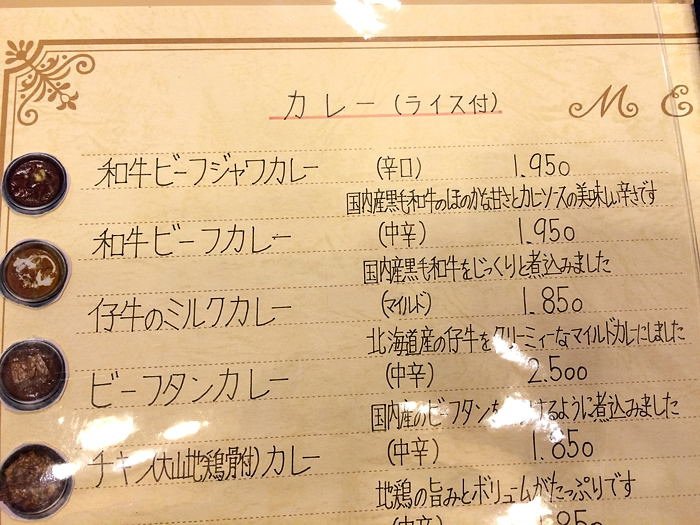 カレー（ライス付）
M E
和牛ビーフジャワカレー (辛口) 1.950
国内産黒毛和牛のほのかな甘さとカレーソースの美味しい辛さです
和牛ビーフカレー (中辛) 1.950
国内産黒毛和牛をじっくりと煮込みました
仔牛のミルクカレー (マイルド) 1.850
北海道産の仔牛をクリーミィーなマイルドカレーにしました
ビーフタンカレー (中辛) 2.500
国内産のビーフタンを けるように煮込みました
チキン(大山地鶏骨付)カレー (中辛) 1.850
地鶏の旨みとボリュームがたっぷりです
(中辛)